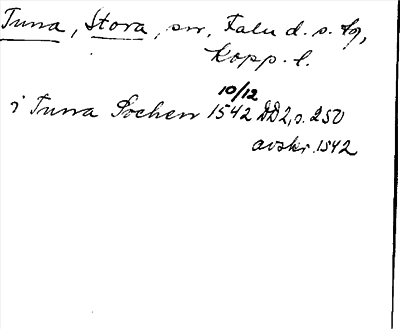 Tuna, Stora, sn, Falu d. s. fg,
Kopp. l.
i Tuna Sochen 10/12 1542 DD2, s. 250
avskr. 1542